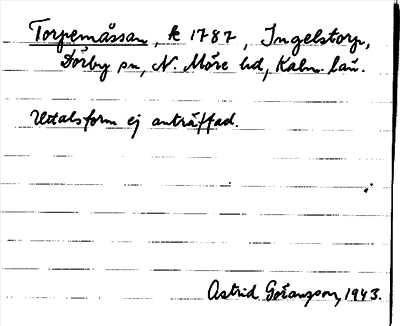 Torpemåssan, k 1787, Ingelstorp,
Dörby sn, N. Möre hd, Kalm. län.
Uttalsform ej anträffad.
Astrid Göransson, 1943.